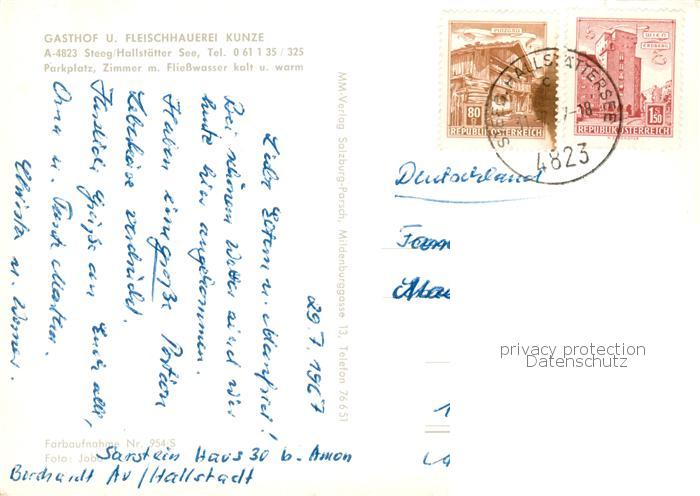 GASTHOF U. FLEISCHHAUEREI KUNZE
A-4823 Steeg/Hallstätter See, Tel. 0 61 1 35 / 325
Parkplatz, Zimmer m. Fließwasser kalt u. warm
29.7.1967
Liebe Eltern u. Manfred!
Bei schönem Wetter sind wir
heute hier angekommen.
Haben eine große Portion
Leberkäse verdrückt.
Herzliche Grüße an Euch alle,
Oma u. Tante Martha.
Christa u. Werner.
Farbaufnahme Nr. 954/S
Foto: Job
Sarstein Haus 30 b. Amon
Au/Hallstadt
MM-Verlag Salzburg-Parsch, Mildenburggasse 13, Telefon 76 6 51
PINZGAU
80
REPUBLIK ÖSTERREICH
WIEN
ERDBERG
1.50
REPUBLIK ÖSTERREICH
STEEG HALLSTÄTTERSEE
-18
4823
Deutschland
privacy protection
Datenschutz